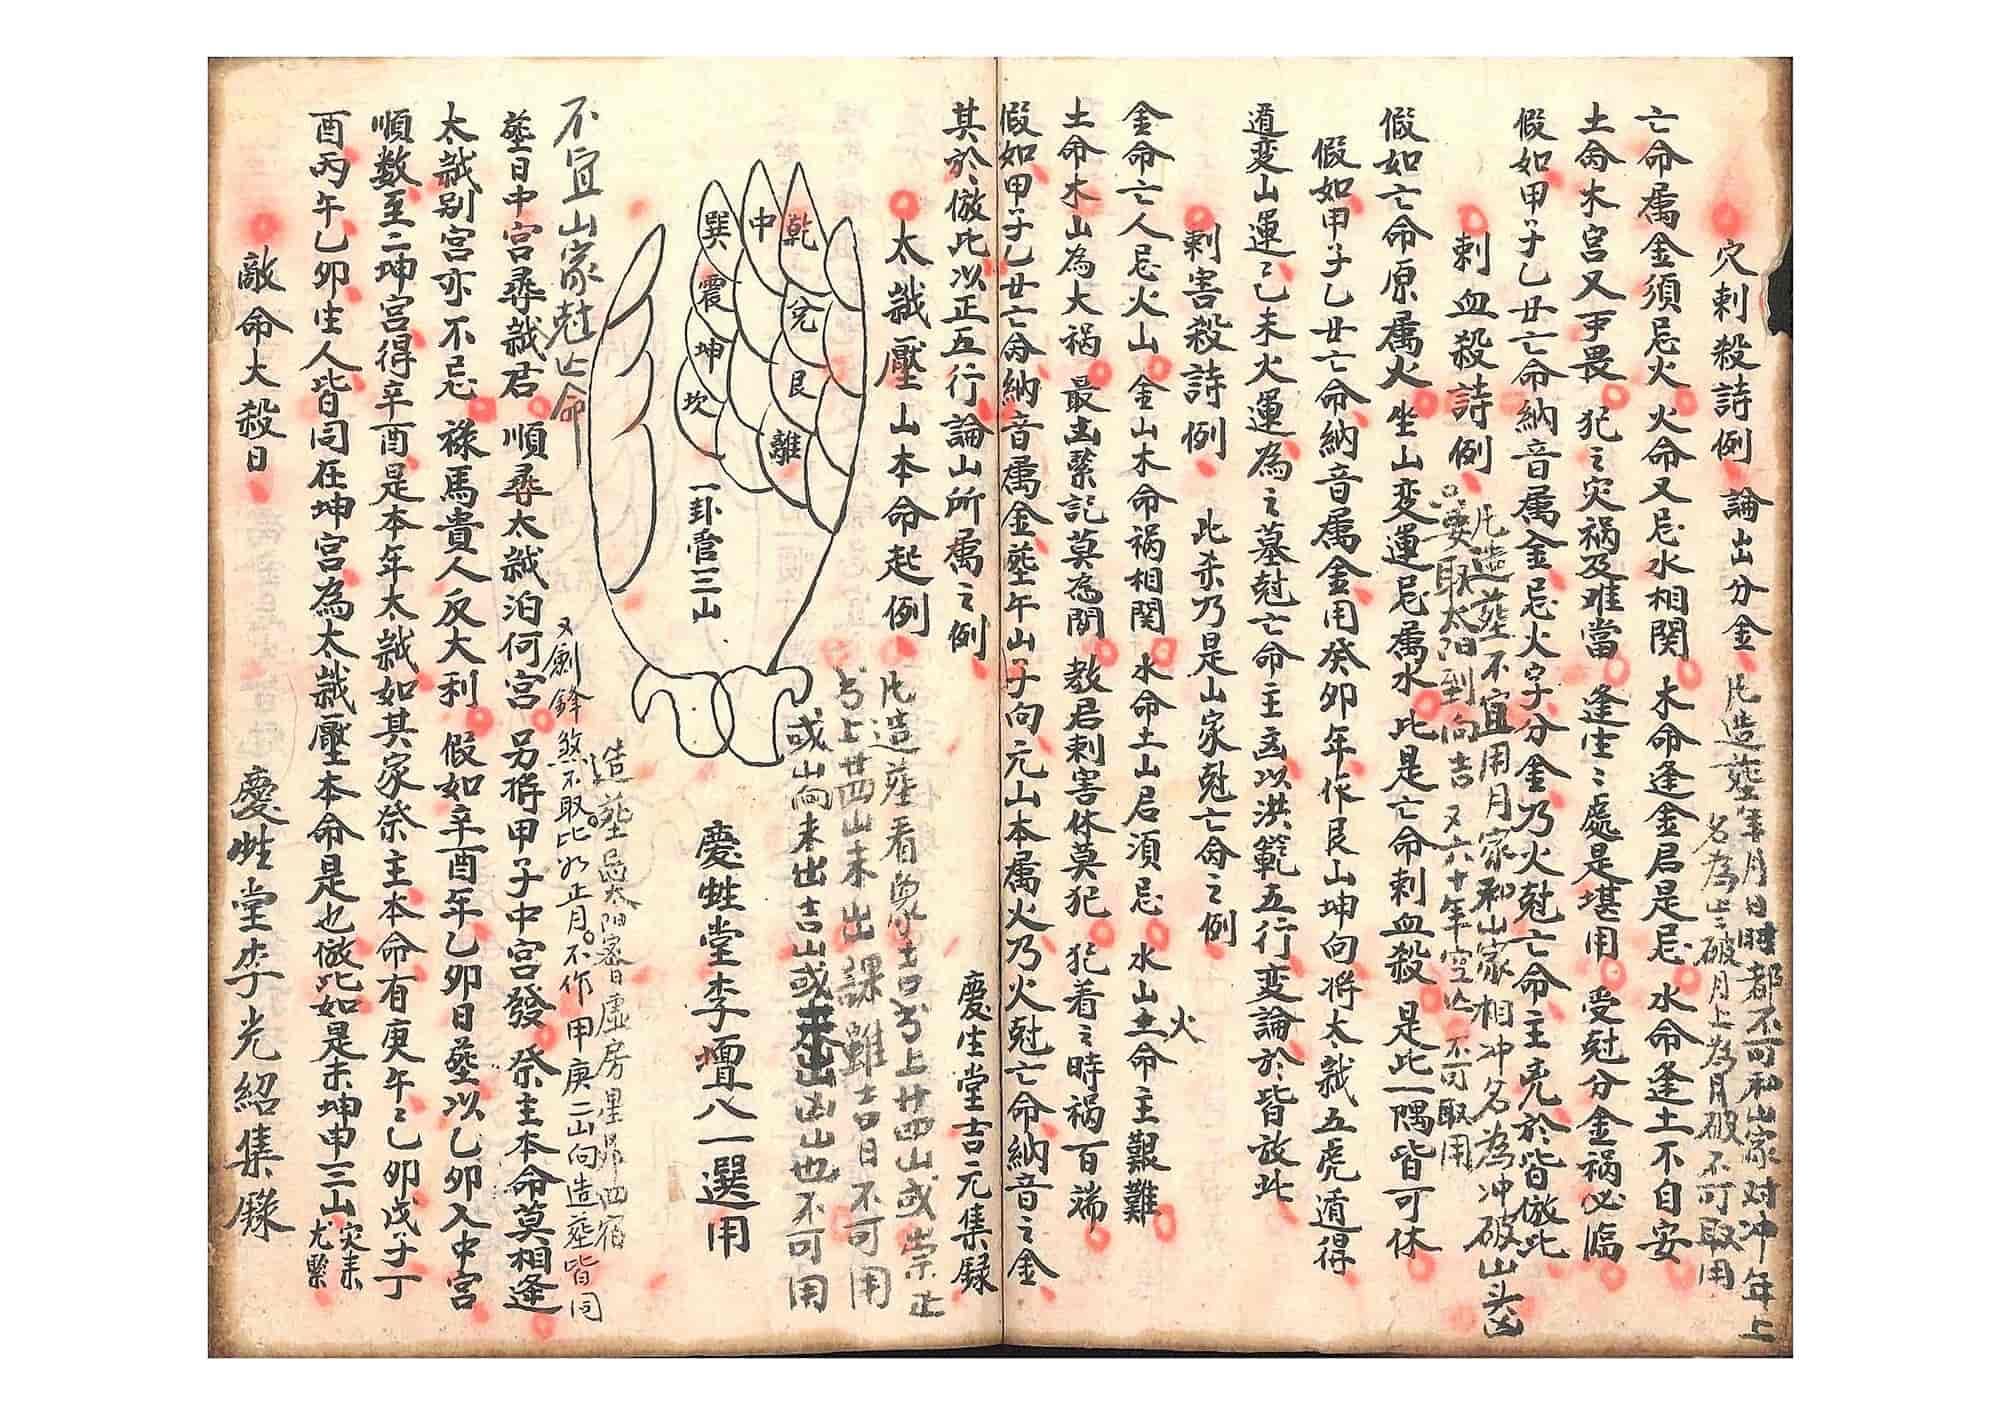 穴刺殺詩例 論山分金
凡造塟年月日時都不可和山家对冲年上
名為山破月上為月破不可取用
亡命属金須忌火 火命又忌水相関 木命逢金君是忌 水命逢土不自安
土命木宮又亊畏 犯之灾祸及难當 逢生之處是堪用 受尅分金祸必臨
假如甲子乙丑亡命納音属金忌火字分金乃火尅亡命主凶於皆倣此
刺血殺詩例
凡造塟不宜用月家和山家相冲名為冲破山头凶
要取太阳到向吉 又六十年空亡不可取用
假如亡命原属火 坐山变運忌属水 此是亡命刺血殺 是此一隅皆可休
假如甲子乙丑亡命納音属金用癸卯年作艮山坤向将太歲五虎遁得
遁变山運乙未火運為之墓尅亡命主凶以洪範五行变論於皆放此
刺害殺詩例 此杀乃是山家尅亡命之例
金命亡人忌火山 金山木命祸相関 水命土山君須忌 水山火命主艱難
土命木山為大祸 最凶緊記莫為関 教君刺害休莫犯 犯着之時祸百端
假如甲子乙丑亡命納音属金塟午山子向元山本属火乃火尅亡命納音之金
其於倣此以正五行論山所属之例 慶生堂吉元集録
太歲壓山本命起例
凡造塟看兔上吉凶上廿四山或崇止
上廿四山未出課雖吉日不可用
或山向未出吉山或未出凶山也不可用
乾
中
巽
震
坤
坎
兌
艮
離
一卦管三山
慶甡堂李壇八一選用
造塟忌太阳密日虚房星昴四宿
又劍鋒煞不取比如正月不作甲庚二山向造塟皆同
不宜山家尅亡命
塟日中宮尋歲君 順尋太歲泊何宮 另将甲子中宮發 祭主本命莫相逢
太歲别宮亦不忌 祿馬貴人反大利 假如辛酉年乙卯日塟以乙卯入中宮
順数至二坤宮得辛酉是本年太歲如其家祭主本命有庚午乙卯戊子丁
酉丙午乙卯生人皆同在坤宮為太歲壓本命是也倣此如是未坤申三山 灾来尤緊
敵命大殺日 慶甡堂李光紹集錄